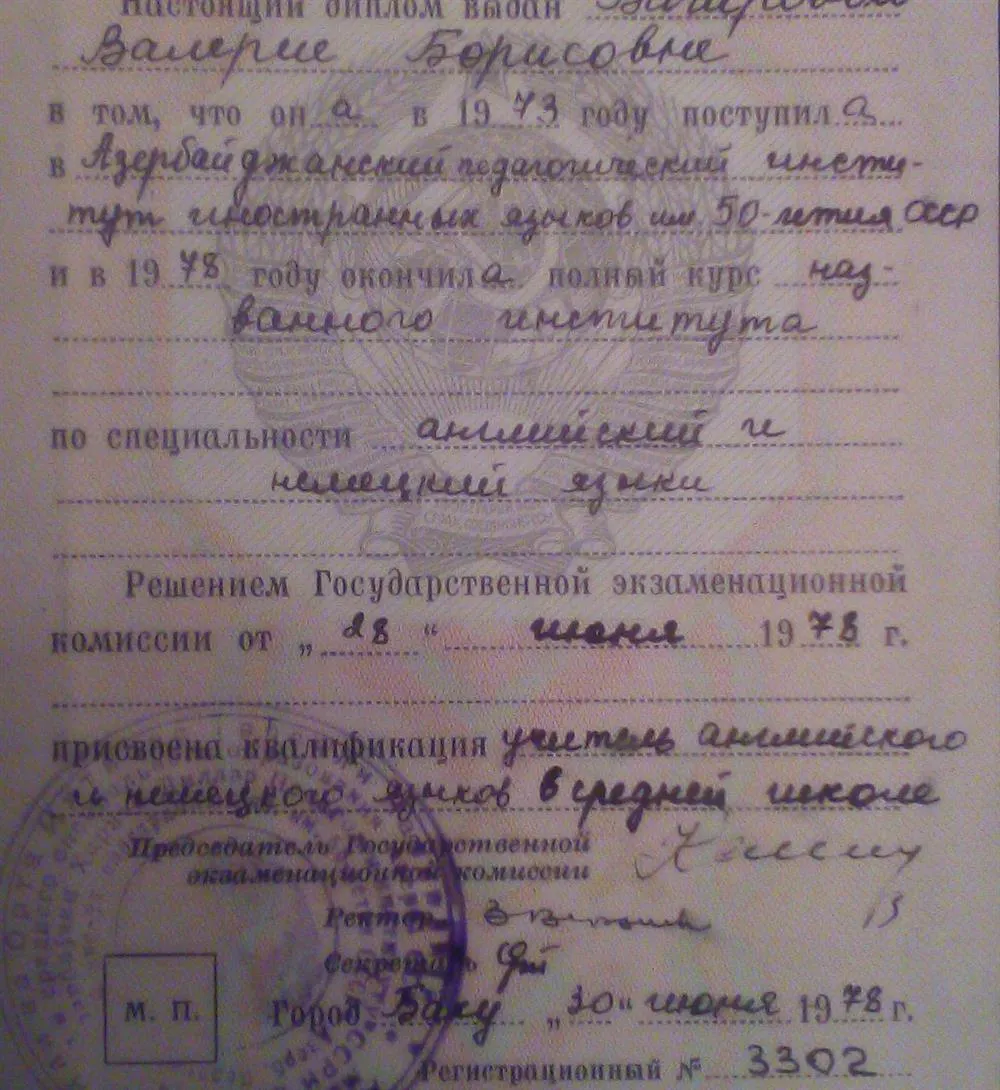 Настоящий диплом выдан
Валерие Борисовне
в том, что он а в 1973 году поступил а
в Азербайджанский педагогический инсти-
тут иностранных языков им 50-летия СССР
и в 1978 году окончил а полный курс наз-
ванного института
по специальности английский и
немецкий языки
Решением Государственной экзаменационной
комиссии от „28“ июня 1978 г.
присвоена квалификация учитель английского
и немецкого языков в средней школе
Председатель Государственной
экзаменационной комиссии
Ректор
Секретарь
М. П.
Город Баку „30“ июня 1978 г.
Регистрационный № 3302